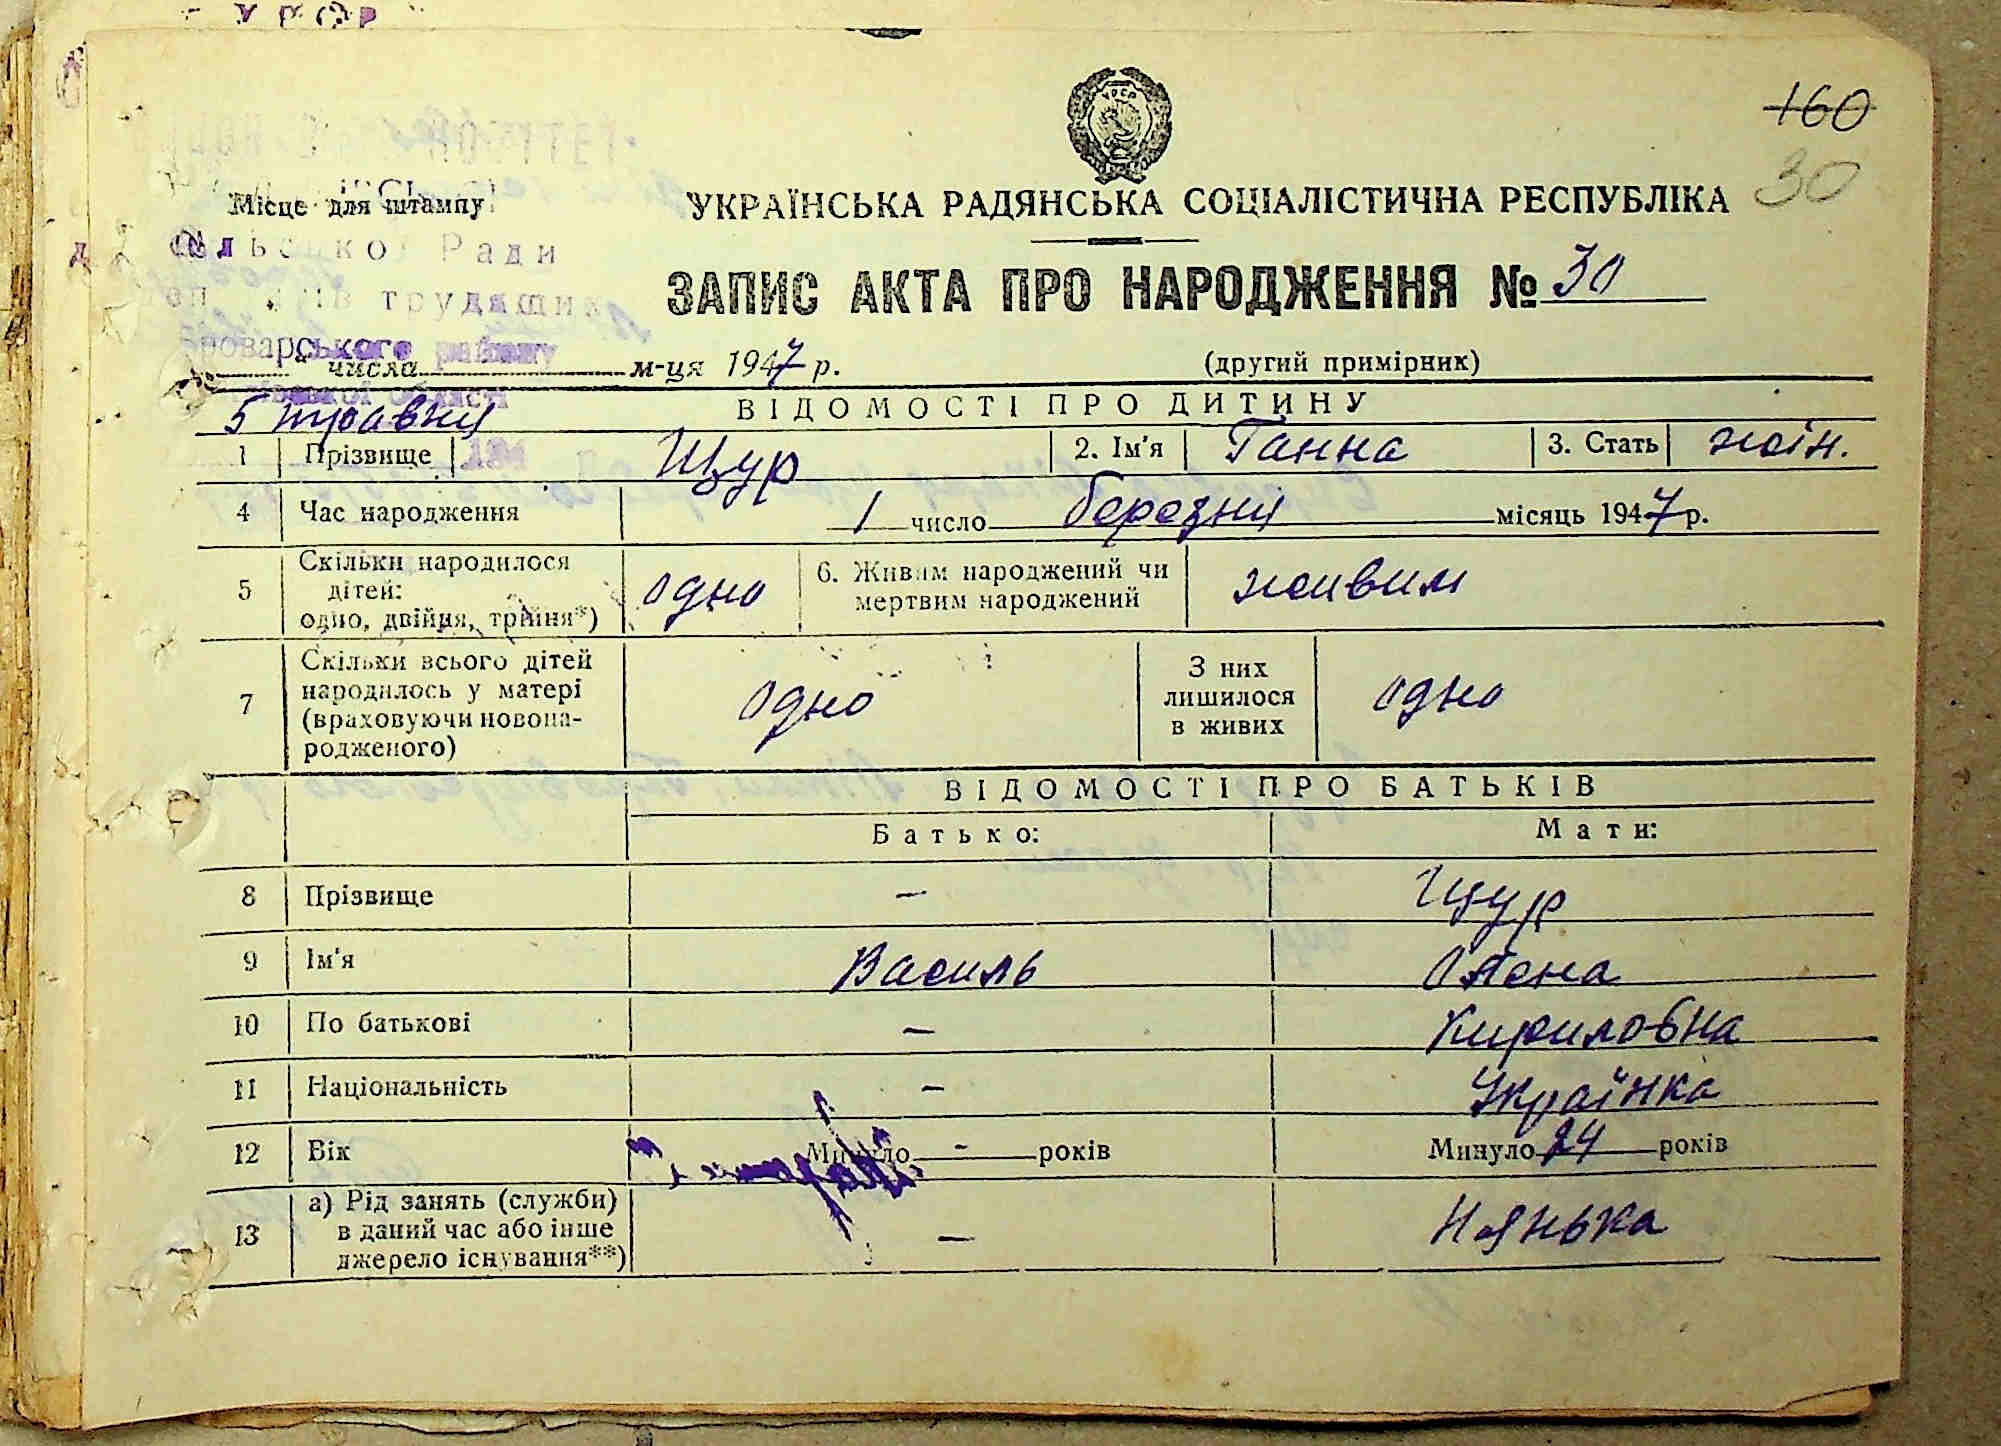 160
30
Місце для штампу
УКРАЇНСЬКА РАДЯНСЬКА СОЦІАЛІСТИЧНА РЕСПУБЛІКА
Ради
трудящих
Броварського району
області
ЗАПИС АКТА ПРО НАРОДЖЕННЯ № 30
" числа м-ця 1947 р. (другий примірник)
5 травня
ВІДОМОСТІ ПРО ДИТИНУ
1 Прізвище Щур 2. Ім'я Ганна 3. Стать жін.
4 Час народження 1 число березня місяць 1947 р.
5 Скільки народилося дітей: одно, двійня, трійня*) одно 6. Живим народжений чи мертвим народжений живим
7 Скільки всього дітей народилось у матері (враховуючи новонародженого) одно З них лишилося в живих одно
ВІДОМОСТІ ПРО БАТЬКІВ
Батько: Мати:
8 Прізвище — Щур
9 Ім'я Василь Олена
10 По батькові — Кириловна
11 Національність — Українка
12 Вік Минуло - років Минуло 24 років
13 а) Рід занять (служби) в даний час або інше джерело існування**) — Нянька